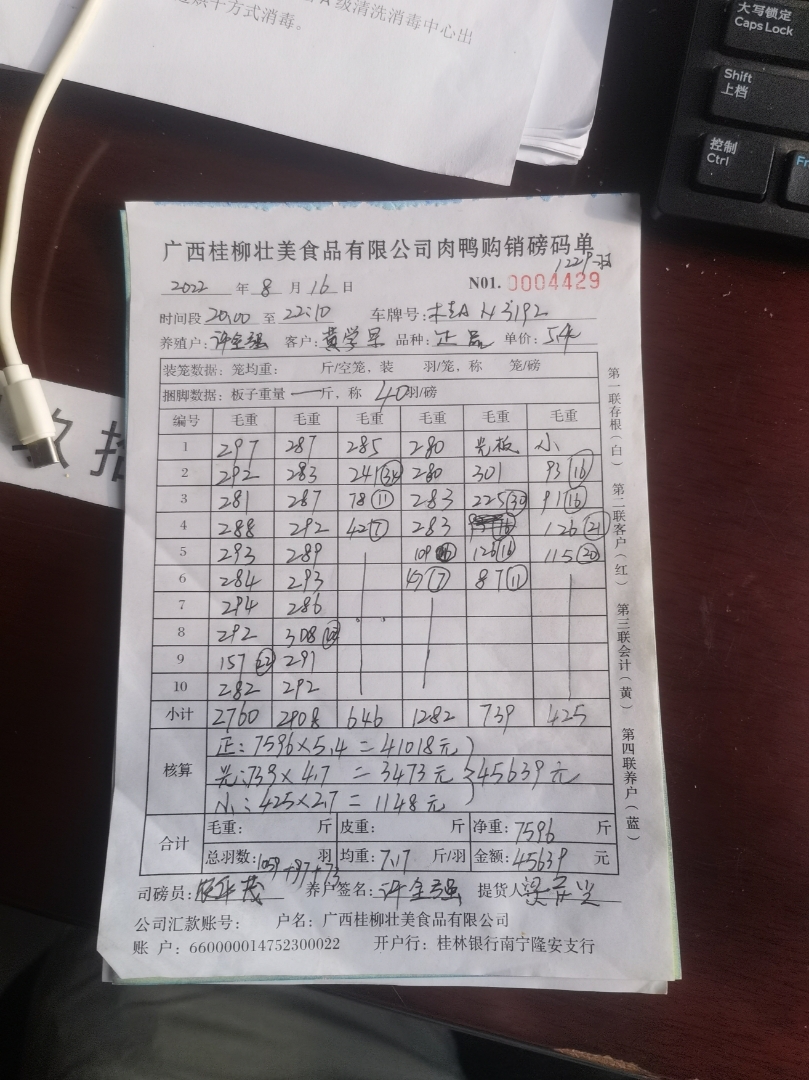 A级清洗消毒中心出
烘干方式消毒。
大写锁定
Caps Lock
Shift
上档
控制
Ctrl
Fn
广西桂柳壮美食品有限公司肉鸭购销磅码单
1229羽
2022 年 8 月 16 日 N01. 0004429
时间段 20:00 至 22:10 车牌号: 桂A N3192
养殖户: 许全强 客户: 黄学早 品种: 正品 单价: 5.4
装笼数据: 笼均重: 斤/空笼, 装 羽/笼, 称 笼/磅
捆脚数据: 板子重量 — 斤, 称 40 羽/磅
编号 毛重 毛重 毛重 毛重 毛重 毛重
1 297 287 285 280 光板 小
2 292 283 241(34) 280 301 93(16)
3 281 287 78(11) 283 225(30) 91(16)
4 288 292 42(7) 283 126(21)
5 293 289 109 126(16) 115(20)
6 284 293 47(7) 87(11)
7 294 286
8 292 308
9 157(22) 291
10 282 292
小计 2760 2908 646 1282 739 425
核算
正: 7596×5.4=41018元
光: 739×4.7=3473元 45639元
小: 425×2.7=1148元
合计
毛重: 斤 皮重: 斤 净重: 7596 斤
总羽数: 1059+97+73 羽 均重: 7.17 斤/羽 金额: 45639 元
司磅员: 养户签名: 许全强 提货人
公司汇款账号: 户名: 广西桂柳壮美食品有限公司
账 户: 660000014752300022 开户行: 桂林银行南宁隆安支行
第一联存根(白)
第二联客户(红)
第三联会计(黄)
第四联养户(蓝)